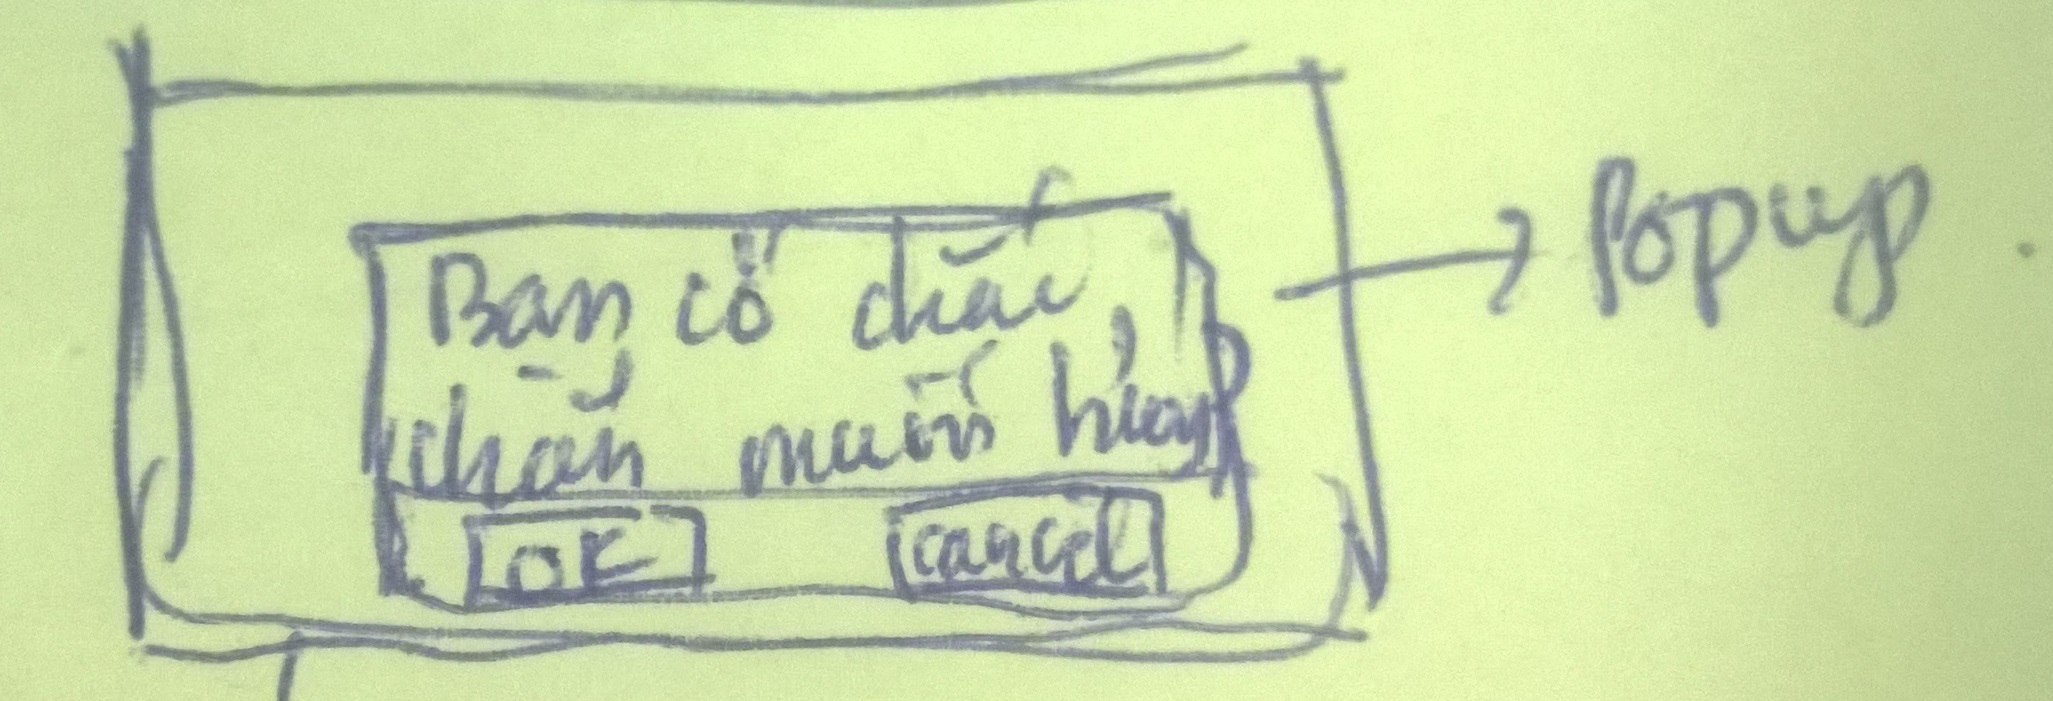 Bạn có chắc
chắn muốn hủy
OK
Cancel
Popup